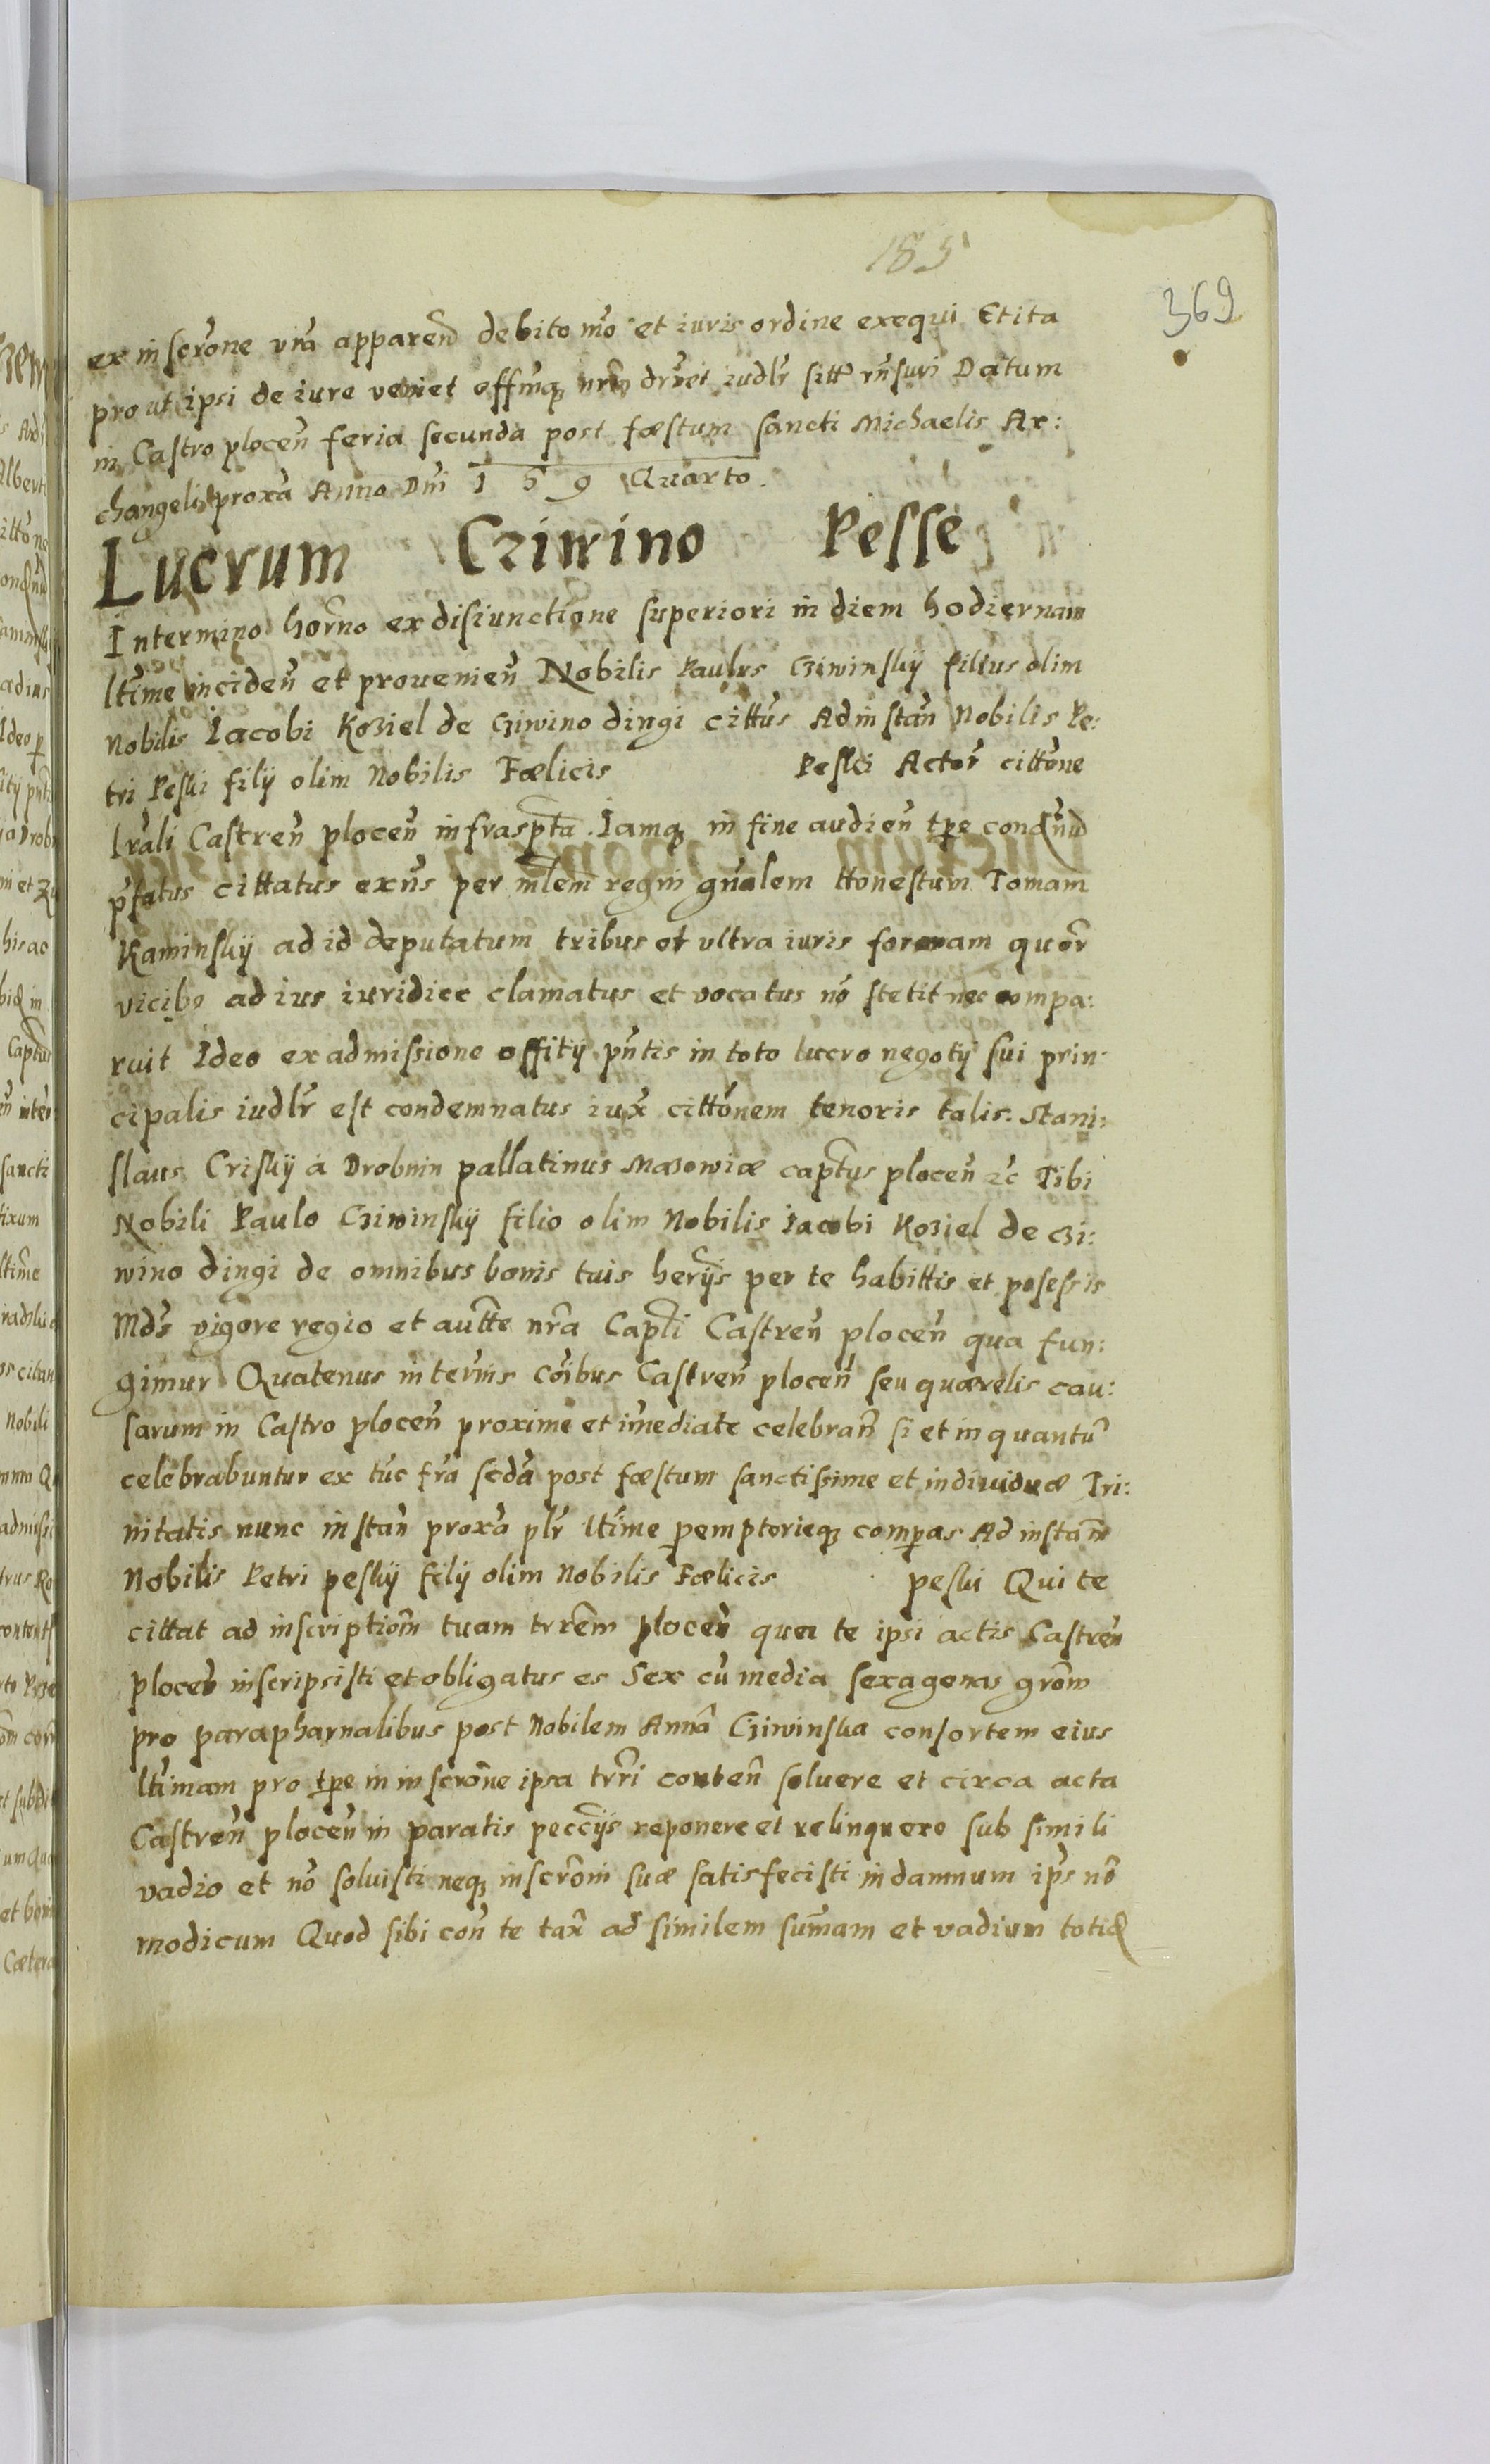 185
369
ex inscrone vra apparen debito mo et iuris ordine exequi Et ita
pro ut ipsi de iure veniet offmq nrm drret iudlr sitt rnsuri Datum
in Castro plocen feria secunda post fæstum sancti Michaelis Ar:
changeli proxa Anno Dni 1 5 9 Quarto.
Lucrum Cziwino Pesse
In termino horno ex disiunctione superiori in diem hodiernam
ltime inciden et prouenien Nobilis Paulus Cziwinskij filius olim
Nobilis Iacobi Koziel de Cziwino dingi cittus Ad instan Nobilis Pe:
tri Peski filij olim Nobilis Fœlicis Peski Actor cittone
lrali Castren plocen infraspta. Iamq in fine audien tpe condnd
pfatus cittatus exns per mlem regni gnalem Honestum Tomam
Kaminskij ad id deputatum tribus et vltra iuris formam quor
vicibo ad ius iuridice clamatus et vocatus no stetit nec compa:
ruit Ideo ex admissione offitij pntis in toto lucro negotij sui prin:
cipalis iudlr est condemnatus iux cittonem tenoris talis: Stani:
slaus Criskij a Drobnin pallatinus Masowiæ captus plocen zc Tibi
Nobili Paulo Cziwinskij filio olim Nobilis Iacobi Koziel de Czi:
wino dingi de omnibus bonis tuis herijs per te habittis et posessis
Mds vigore regio et autte nra Capti Castren plocen qua fun:
gimur Quatenus in termis coibus Castren plocen seu quærelis cau:
sarum in Castro plocen proxime et imediate celebran si et in quantu
celebrabuntur ex tuc fra scda post fæstum sanctissime et individuæ Tri:
nitatis nunc instan proxa plr ltime peremptorieq compas Ad instan
Nobilis Petri peskij filij olim Nobilis Fœlicis peski Qui te
cittat ad inscriptiom tuam trrem plocen qua te ipsi actis Castren
plocen inscripsisti et obligatus es Sex cu media sexagenas grom
pro parapharnalibus post Nobilem Anna Cziwinska consortem eius
ltimam pro tpe in inscrone ipsa trri conten soluere et circa acta
Castren plocen in paratis peccijs reponere et relinquere sub simili
vadio et no soluisti neq inscromi suæ satisfecisti in damnum ips no
modicum Quod sibi con te tax ad similem sumam et vadium totid